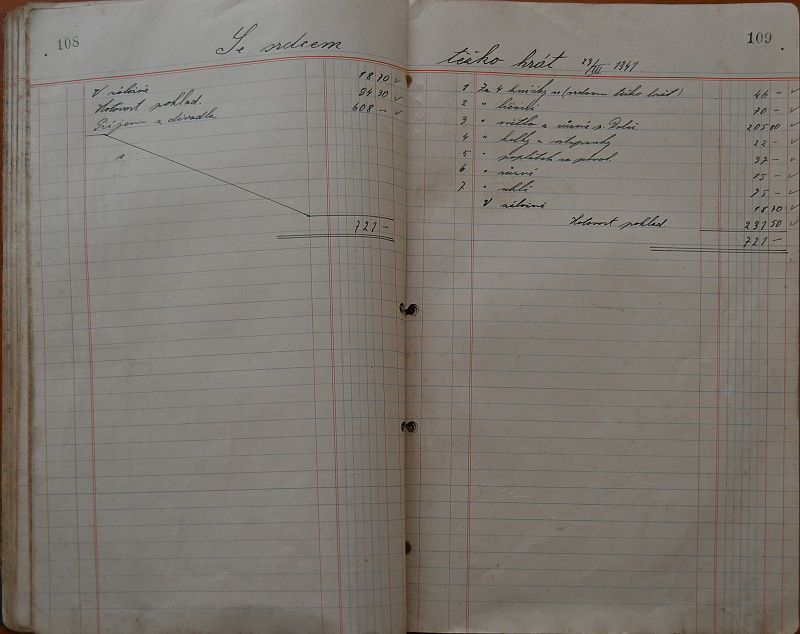 108
Se srdcem
V záloze 18 70
Hotovost poklad. 94 30
Příjem z divadla 608 –
721 –
109
těžko hrát 23/XII 1941
1 Za 4 knížky se (srdcem těžko hrát) 46 –
2 " líčení 70 –
3 " světlo a různé p. 205 80
4 " kolky a vstupenky 22 –
5 " poplatek za povol. 37 –
6 " různé 15 –
7 " uhlí 75 –
V záloze 18 70
Hotovost poklad. 231 50
721 –